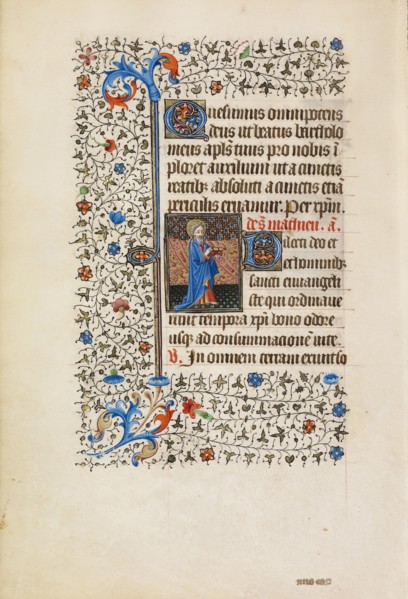 Quesumus omnipotens
deus ut beatus bartholo
meus apl̄s tuus pro nobis ī
ploret auxilium ut a cunctis
reatibꝫ absoluti a cunctis etiā
periculis eruamur. Per xp̄m.
De s̄ mathieu. a.
Dilecti deo et
et hominibꝫ
sancti euuangeli
ste qui ordinaue
runt tempora xp̄i bono odore
usqꝫ ad consummacionē uite.
℣. In omnem terram exiuit so